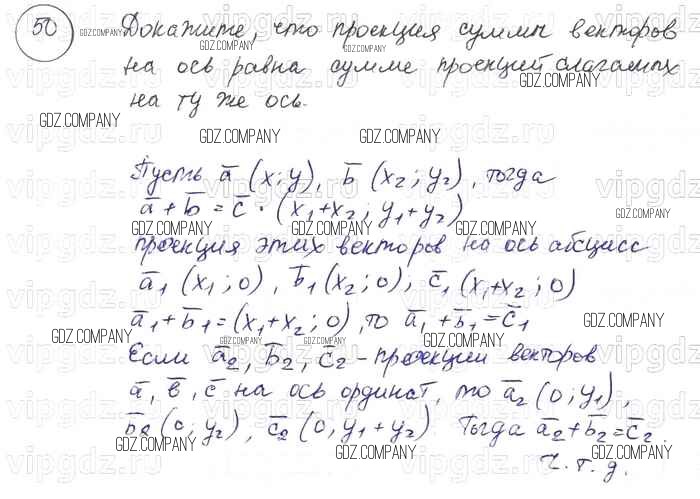 50 Докажите, что проекция суммы векторов
на ось равна сумме проекций слагаемых
на ту же ось.
Пусть a̅ (x; y), b̅ (x₂; y₂), тогда
a̅ + b̅ = c̅ · (x₁+x₂; y₁+y₂)
проекция этих векторов на ось абсцисс
a̅₁ (x₁; 0), b̅₁ (x₂; 0), c̅₁ (x₁+x₂; 0)
a̅₁ + b̅₁ = (x₁+x₂; 0), то a̅₁ + b̅₁ = c̅₁
Если a̅₂, b̅₂, c̅₂ - проекции векторов
a̅, b̅, c̅ на ось ординат, то a̅₂ (0; y₁),
b̅₂ (0; y₂), c̅₂ (0, y₁+y₂) Тогда a̅₂ + b̅₂ = c̅₂
Ч.т.д.
GDZ.COMPANY
vipgdz.ru